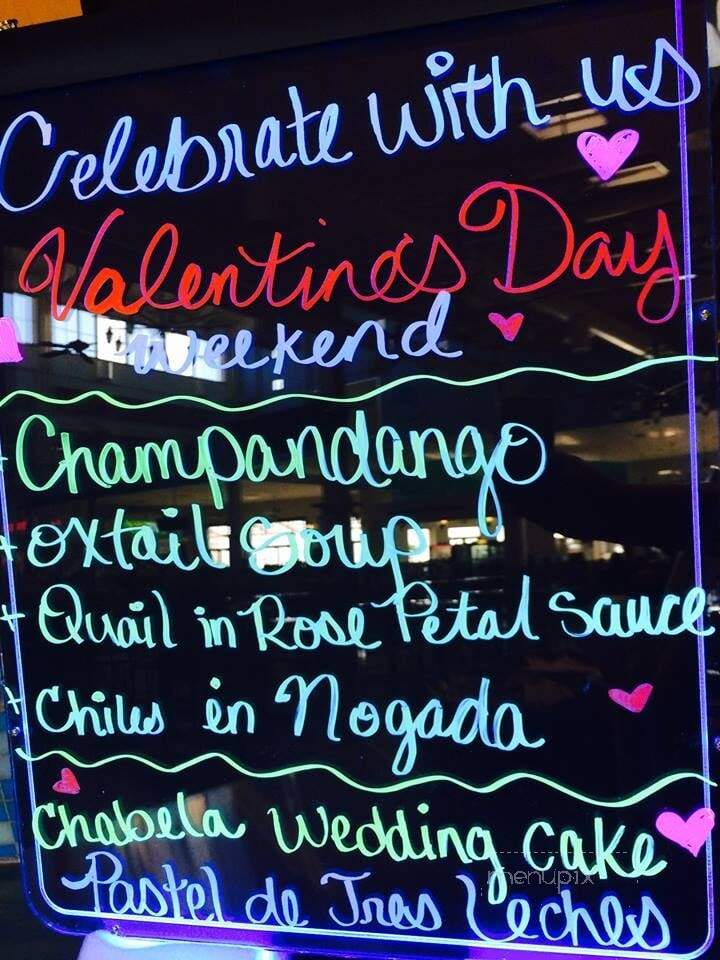 Celebrate with us
Valentines Day
weekend
Champandango
+ oxtail Soup
+ Quail in Rose Petal Sauce
+ Chiles en Nogada
Chabela Wedding Cake
Pastel de Tres Leches
menupix